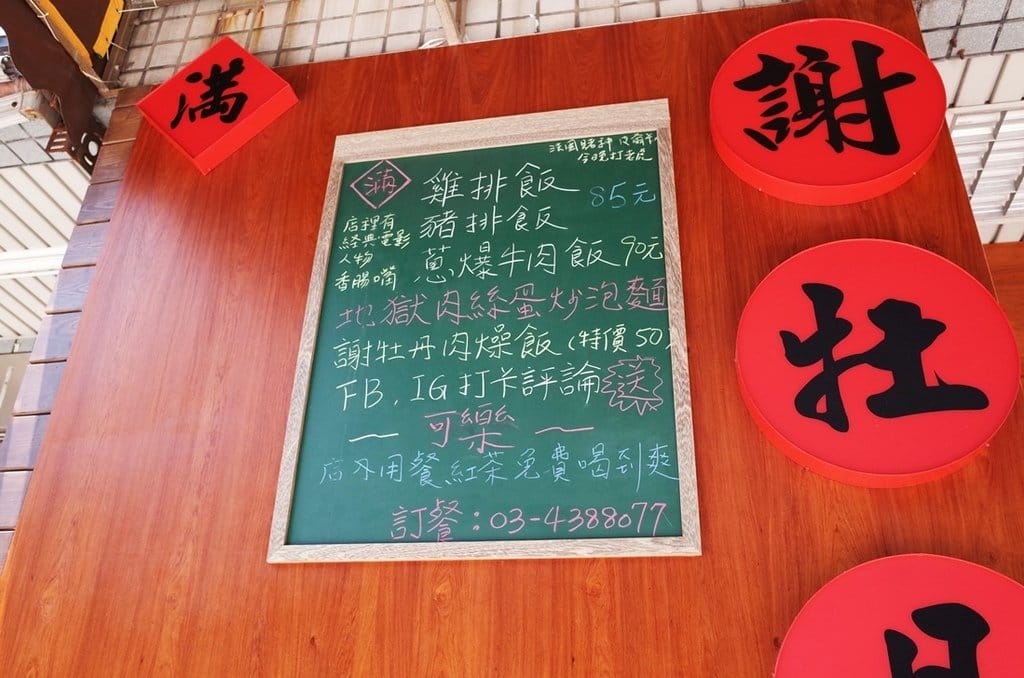 滿
謝
牡
法國賭神
今晚打老虎
滿
雞排飯
85元
豬排飯
店裡有
經典電影
人物
香腸嘴
蔥爆牛肉飯 90元
地獄肉絲蛋炒泡麵
謝牡丹肉燥飯(特價50)
FB, IG打卡評論送
~ 可樂 ~
店內用餐紅茶免費喝到爽
訂餐:03-4388077